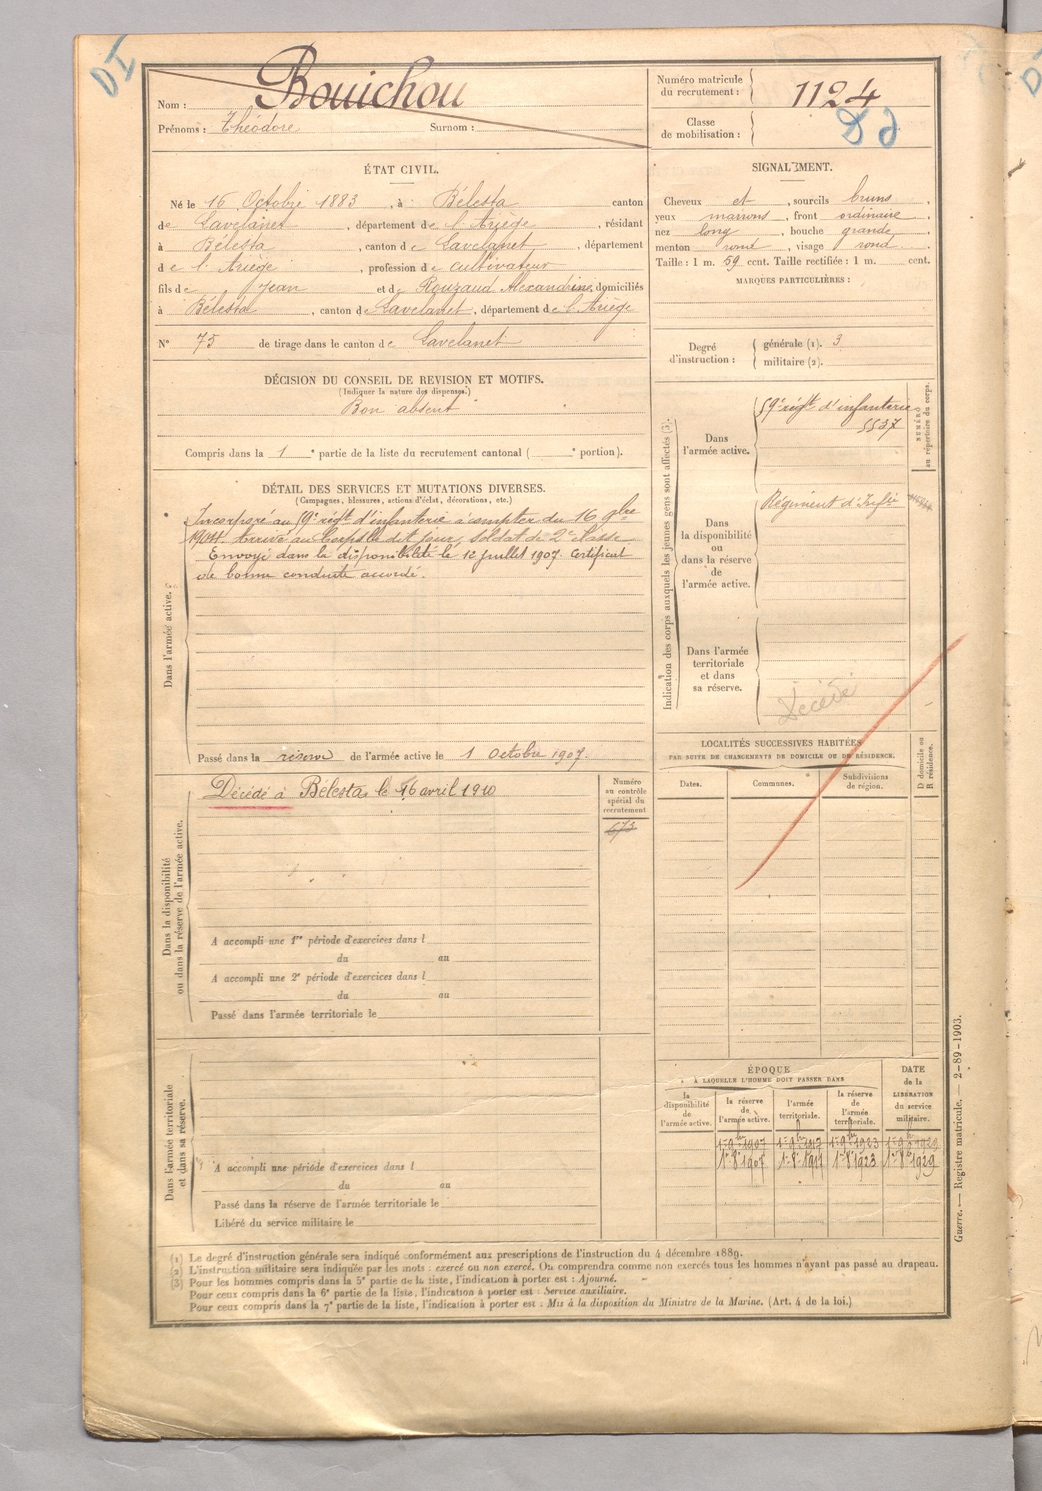 DI
Nom : Bouichou
Prénoms : Théodore Surnom :
Numéro matricule du recrutement : 1124
Classe de mobilisation :
ÉTAT CIVIL.
Né le 16 Octobre 1883, à Bélesta canton
de Lavelanet, département de l'Ariège, résidant
à Bélesta, canton de Lavelanet, département
de l'Ariège, profession de cultivateur
fils de Jean et de Rouzaud Alexandrine, domiciliés
à Bélesta, canton de Lavelanet, département de l'Ariège
N° 75 de tirage dans le canton de Lavelanet
SIGNALEMENT.
Cheveux et, sourcils bruns,
yeux marrons, front ordinaire,
nez long, bouche grande,
menton rond, visage rond.
Taille : 1 m. 59 cent. Taille rectifiée : 1 m. cent.
MARQUES PARTICULIÈRES :
Degré d'instruction : générale (1). 3
militaire (2).
DÉCISION DU CONSEIL DE REVISION ET MOTIFS.
(Indiquer la nature des dispenses.)
Bon absent
Compris dans la 1e partie de la liste du recrutement cantonal ( e portion).
DÉTAIL DES SERVICES ET MUTATIONS DIVERSES.
(Campagnes, blessures, actions d'éclat, décorations, etc.)
Dans l'armée active.
Incorporé au 59e régt d'infanterie à compter du 16 9bre
1904, arrivé au Corps le dit jour, soldat de 2e classe
Envoyé dans la disponibilité le 12 juillet 1907. Certificat
de bonne conduite accordé.
Passé dans la réserve de l'armée active le 1 Octobre 1907.
Indication des corps auxquels les jeunes gens sont affectés (3).
NUMÉRO au répertoire du corps.
Dans l'armée active.
59e régt d'infanterie
5537
Dans la disponibilité ou dans la réserve de l'armée active.
Régiment d'Infie
Dans l'armée territoriale et dans sa réserve.
Décédé
LOCALITÉS SUCCESSIVES HABITÉES
PAR SUITE DE CHANGEMENTS DE DOMICILE OU DE RÉSIDENCE.
Dates. Communes. Subdivisions de région. D domicile ou R résidence.
Dans la disponibilité ou dans la réserve de l'armée active.
Décédé à Bélesta le 16 avril 1910
Numéro au contrôle spécial du recrutement
673
A accompli une 1re période d'exercices dans l
du au
A accompli une 2e période d'exercices dans l
du au
Passé dans l'armée territoriale le
Dans l'armée territoriale et dans sa réserve.
A accompli une période d'exercices dans l
du au
Passé dans la réserve de l'armée territoriale le
Libéré du service militaire le
ÉPOQUE
À LAQUELLE L'HOMME DOIT PASSER DANS
DATE de la LIBÉRATION du service militaire.
la disponibilité de l'armée active. la réserve de l'armée active. l'armée territoriale. la réserve de l'armée territoriale.
(1) Le degré d'instruction générale sera indiqué conformément aux prescriptions de l'instruction du 4 décembre 1889.
(2) L'instruction militaire sera indiquée par les mots : exercé ou non exercé. On comprendra comme non exercés tous les hommes n'ayant pas passé au drapeau.
(3) Pour les hommes compris dans la 5e partie de la liste, l'indication à porter est : Ajourné.
Pour ceux compris dans la 6e partie de la liste, l'indication à porter est : Service auxiliaire.
Pour ceux compris dans la 7e partie de la liste, l'indication à porter est : Mis à la disposition du Ministre de la Marine. (Art. 4 de la loi.)
Guerre. — Registre matricule. — 2-89-1903.